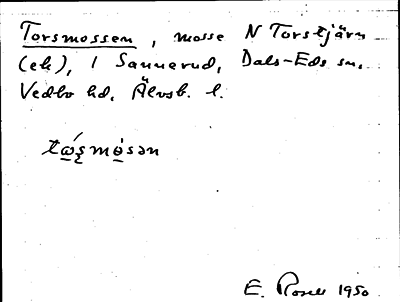 Torsmossen, mosse N Torstjärn
(ek), 1 Sannerud, Dals-Eds sn,
Vedbo hd, Älvsb. l.
E. Rosell 1950